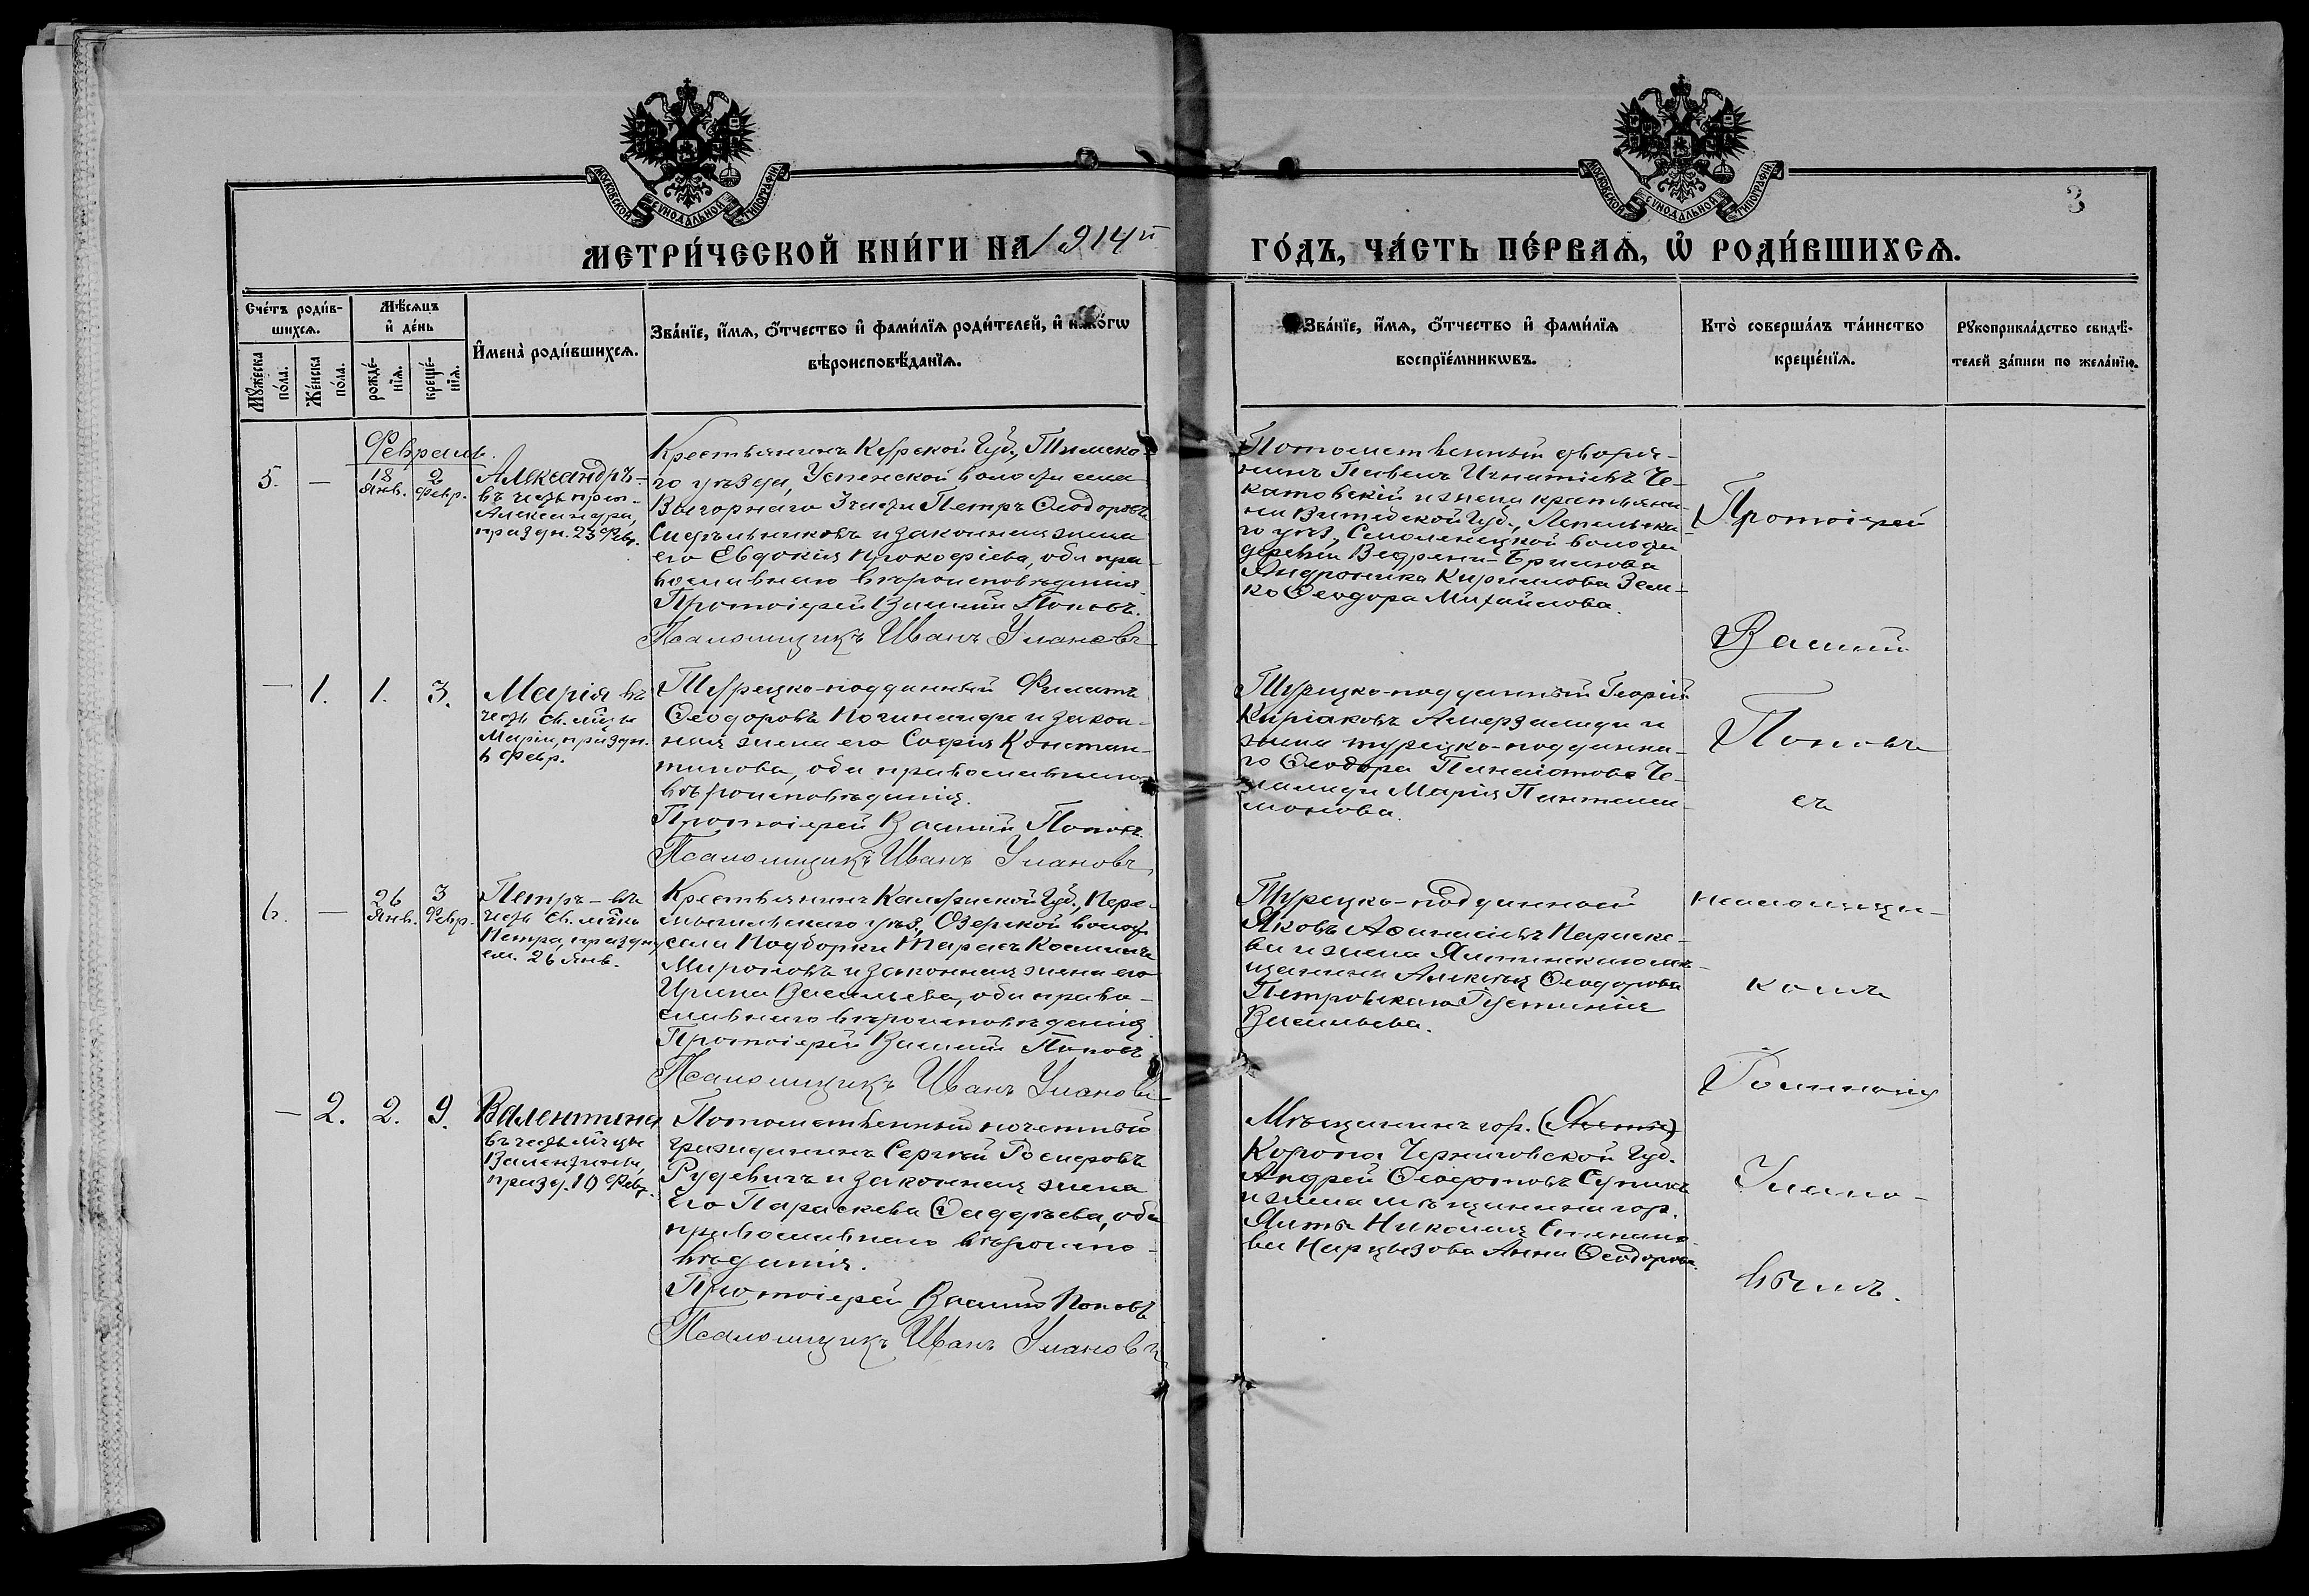 МОСКОВСКОЙ СѴНОДАЛЬНОЙ ТИПОГРАФІИ
МОСКОВСКОЙ СѴНОДАЛЬНОЙ ТИПОГРАФІИ
3
МЕТРИ́ЧЕСКОЙ КНИ́ГИ НА 1914й
ГО́ДЪ, ЧА́СТЬ ПЕ́РВАѦ, Ѡ҆ РОДИ́ВШИХСѦ.
Сче́тъ роди́в-
шихсѧ.
Мꙋ́жеска по́ла.
Же́нска по́ла.
Мѣ́сѧцъ
и҆ де́нь
рожде́-
нїѧ.
креще́-
нїѧ.
И҆мена̀ роди́вшихсѧ.
Зва́нїе, и҆́мѧ, ѻ҆́тчество и҆ фами́лїѧ роди́телей, и҆ како́гѡ
вѣроисповѣ́данїѧ.
Зва́нїе, и҆́мѧ, ѻ҆́тчество и҆ фами́лїѧ
воспрїе́мникѡвъ.
Кто̀ соверша́лъ та́инство
креще́нїѧ.
Рꙋкоприкла́дство свидѣ́-
телей за́писи по жела́нїю.
Февраль.
5. — 18 Янв. 2 Февр.
Александръ-
въ честь преп.
Александра,
праздн. 23 Фев.
Крестьянинъ Курской Губ., Тимско-
го уѣзда, Успенской волости села
Петръ Ѳеодоровъ
Сидѣльниковъ и законная жена
его Евдокія Прокофіева, оба пра-
вославнаго вѣроисповѣданія.
Протоіерей Василій Поповъ.
Псаломщикъ Иванъ Улановъ
Потомственный дворя-
нинъ Павелъ Игнатіевъ Че-
катовскій и жена крестьяни-
на Витебской Губ., Лепельска-
го уѣз., Смоленецкой волости
деревни
Андроника Кириллова Зем-
ко Ѳеодора Михайлова.
— 1. 1. 3.
Марія въ
честь св. м-цы
Маріи, праздн.
6 Февр.
Турецко-подданный Филатъ
Ѳеодоровъ и закон-
ная жена его Софія Констан-
тинова, оба православнаго
вѣроисповѣданія.
Протоіерей Василій Поповъ.
Псаломщикъ Иванъ Улановъ
Турецко-подданный Георгій
Киріаковъ и
жена турецко-поддан-
го Ѳеодора Панаіотова Че-
лалиди Марія Пантелеи-
монова.
6. — 26 Янв. 3 Февр.
Петръ - въ
честь св. м-ка
Петра, праздну
ем. 26 Янв.
Крестьянинъ Калужской Губ., Пере-
мышльскаго уѣз., Озерской волос.
села Подборки Тарасъ Косминъ
Мироновъ и законная жена его
Ирина Васильева, оба право-
славнаго вѣроисповѣданія
Протоіерей Василій Поповъ
Псаломщикъ Иванъ Улановъ
Турецко-подданный
Яковъ Аѳанасіевъ Параске-
ва и жена Ялтинскаго мѣ-
щанина Алексія Ѳеодорова
Петровскаго Іустинія
Васильева.
— 2. 2. 9.
Валентина
въ честь м-цы
Валентины,
празд. 10 Фев.
Потомственный почетный
гражданинъ Сергѣй
Рудевичъ и законная жена
его Параскева Ѳаддѣева, оба
православнаго вѣроиспо-
вѣданія.
Протоіерей Василій Поповъ
Псаломщикъ Иванъ Улановъ
Мѣщанинъ гор. (Ялты)
Коропа Черниговской Губ.
Андрей Ѳеодотовъ
и жена мѣщанина гор.
Ялты Николая
Анна Ѳеодорова.
Протоіерей
Василій
Поповъ
съ
псаломщи-
комъ
Іоанномъ
Улано-
вымъ.